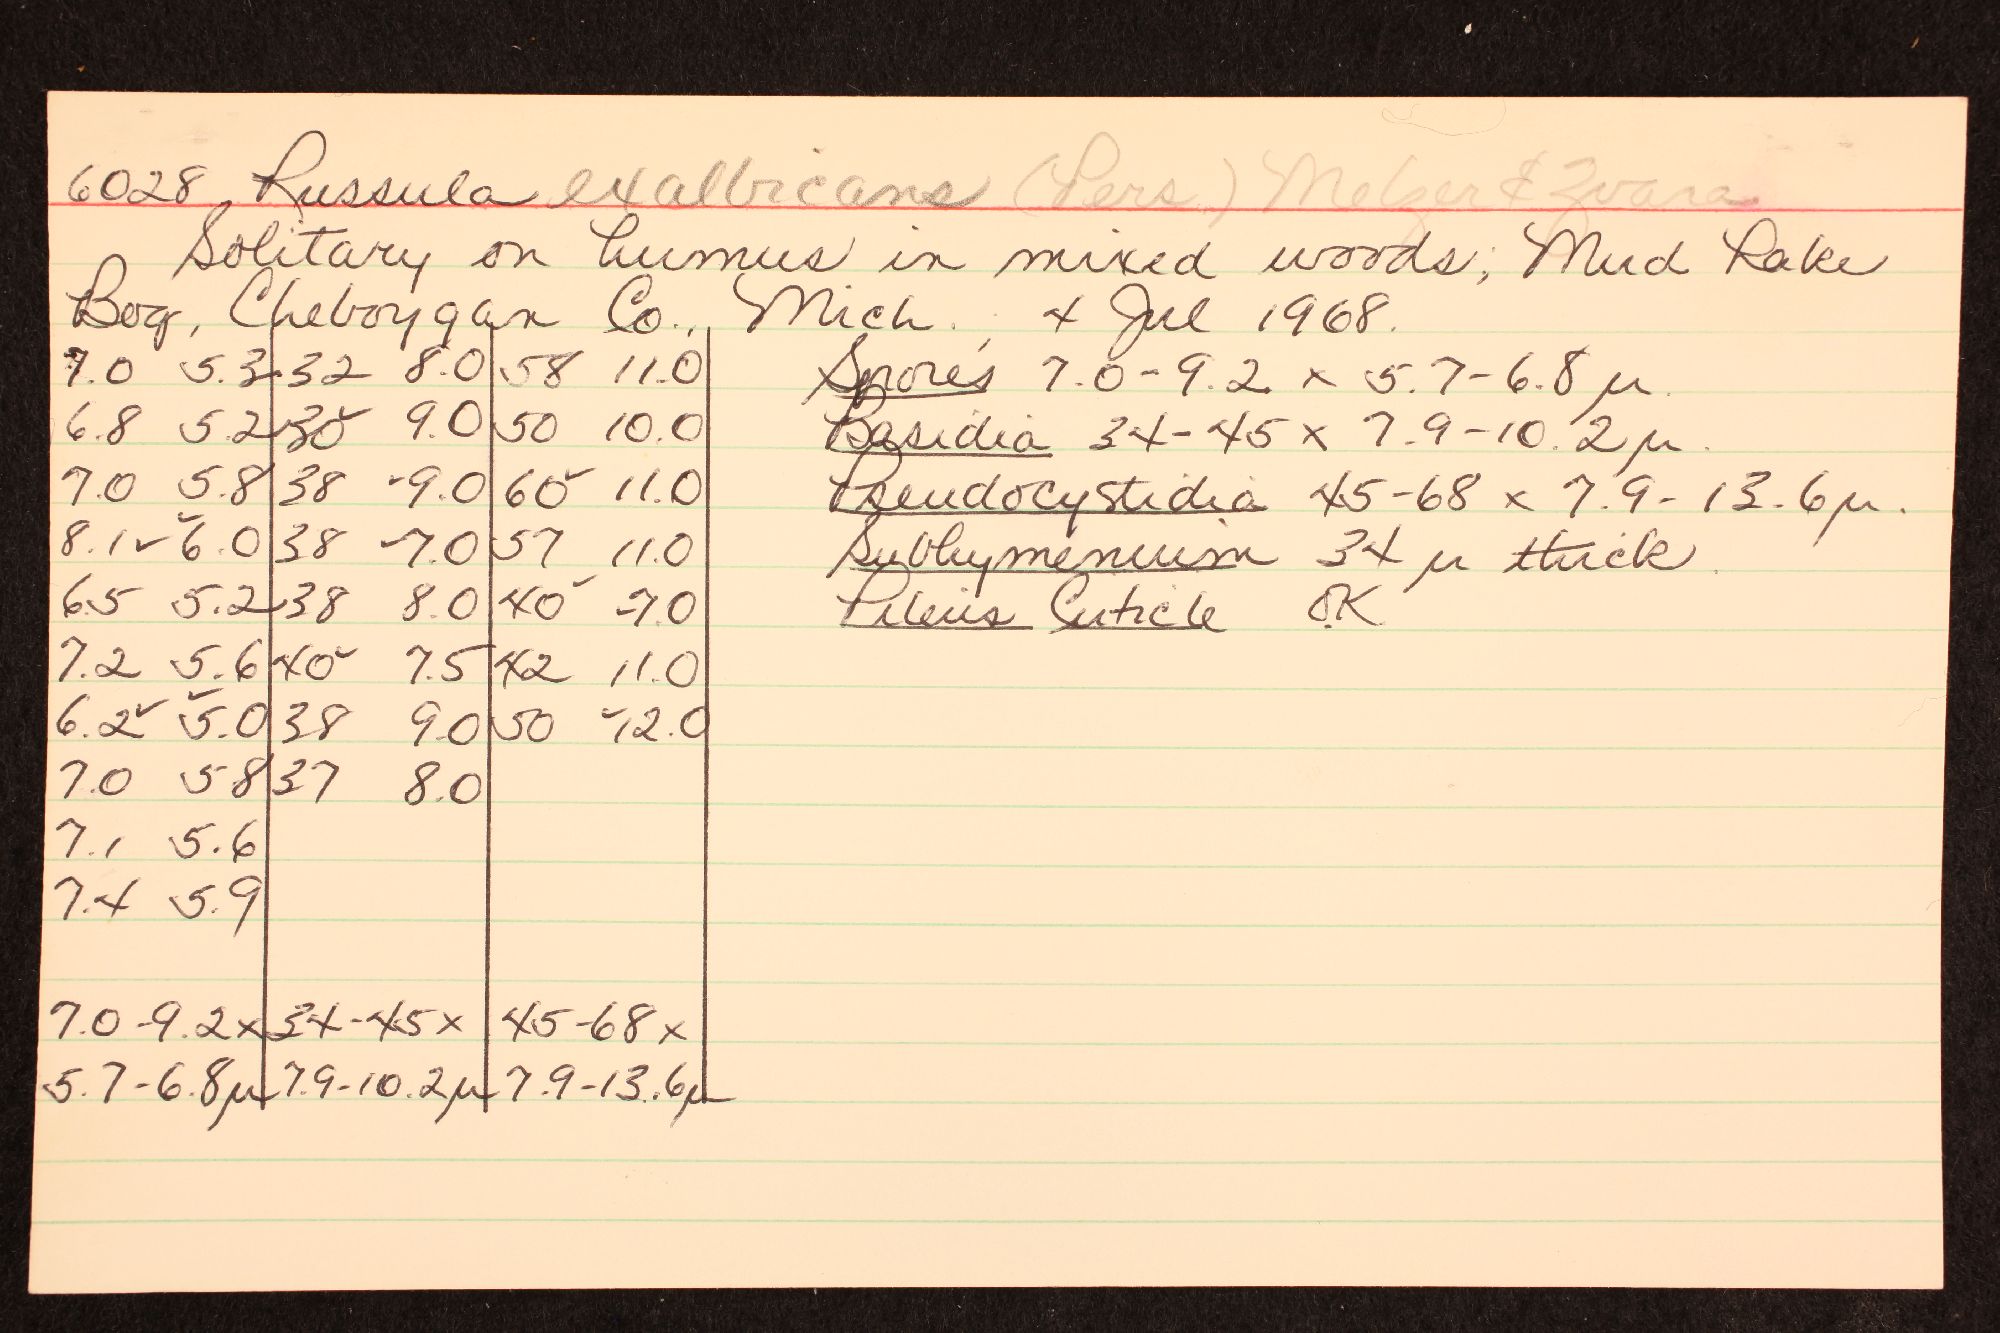 6028 Russula exalbicans (Pers.) Melzer & Zvara
Solitary on humus in mixed woods; Mud Lake
Bog, Cheboygan Co., Mich., 4 Jul 1968.
7.0 5.3 32 8.0 58 11.0 Spores 7.0-9.2 x 5.7-6.8 µ.
6.8 5.2 30✓ 9.0 50 10.0 Basidia 34-45 x 7.9-10.2 µ.
7.0 5.8 38 ✓9.0 60✓ 11.0 Pseudocystidia 45-68 x 7.9-13.6 µ.
8.1✓ ✓6.0 38 ✓7.0 57 11.0 Subhymenium 34 µ thick.
6.5 5.2 38 8.0 40✓ ✓7.0 Pileus Cuticle OK
7.2 5.6 40✓ 7.5 42 11.0
6.2✓ ✓5.0 38 9.0 50 ✓12.0
7.0 5.8 37 8.0
7.1 5.6
7.4 5.9
7.0-9.2 x 34-45 x 45-68 x
5.7-6.8 µ 7.9-10.2 µ 7.9-13.6 µ